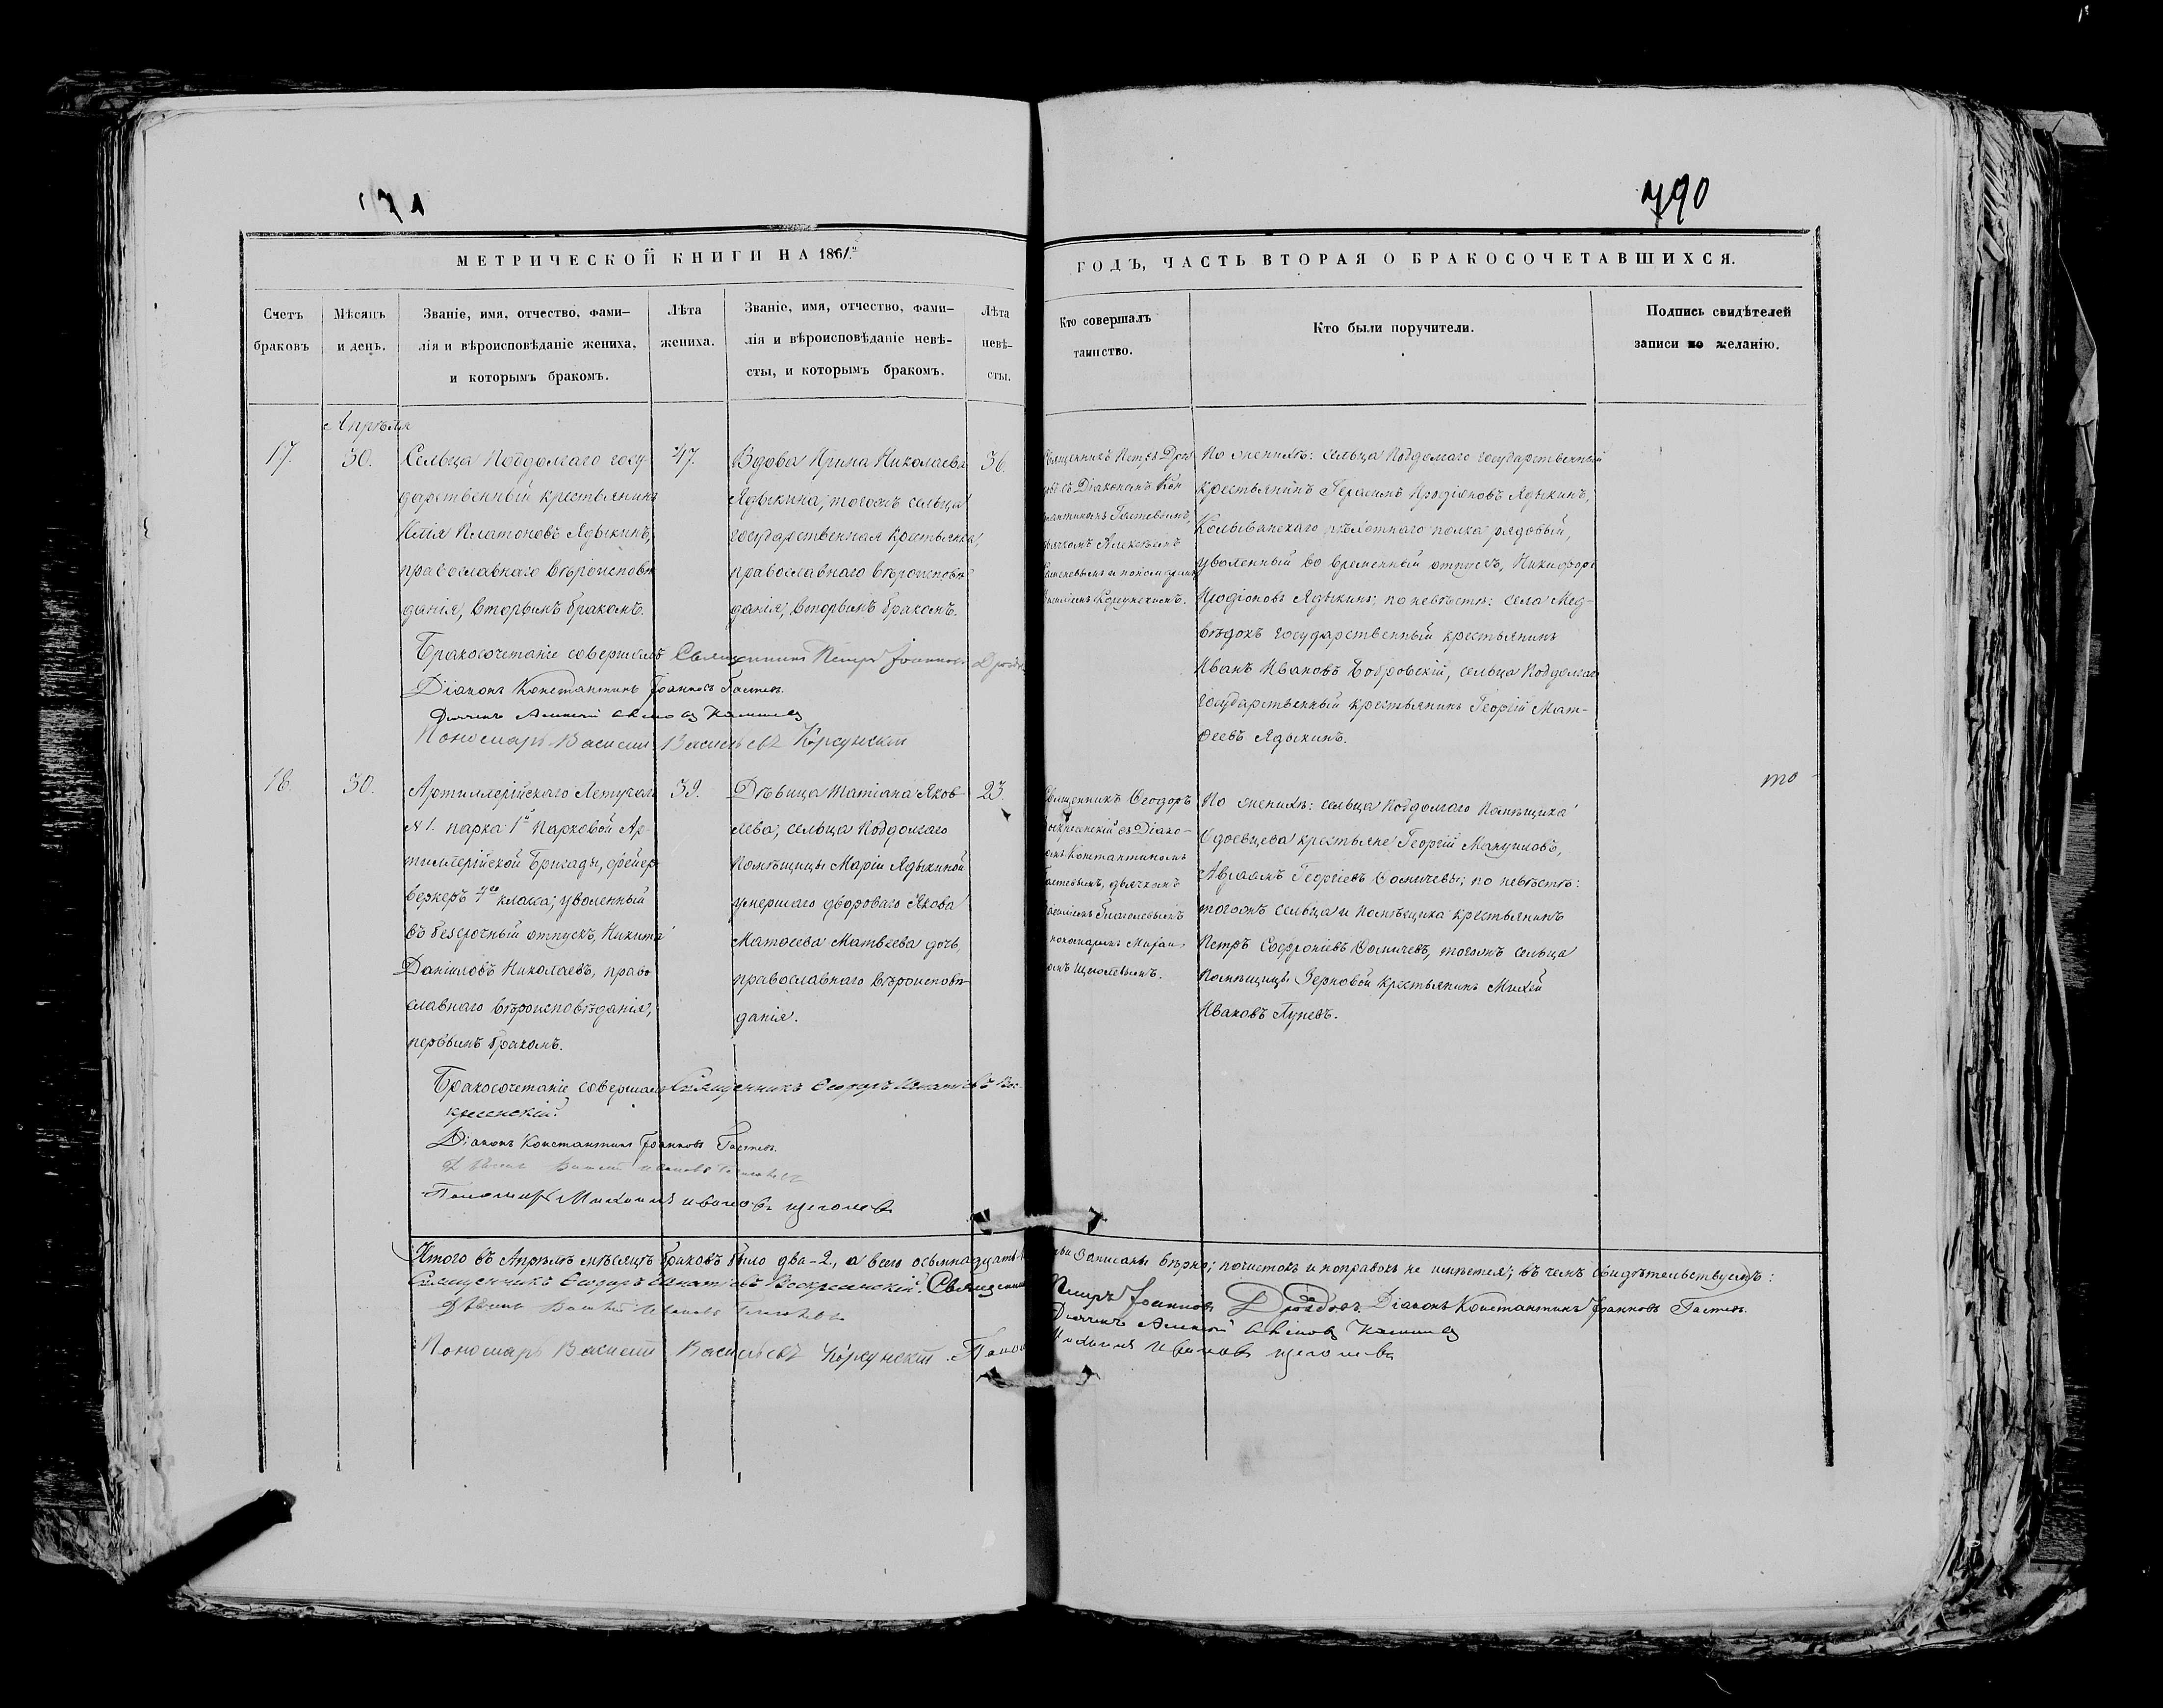 790
МЕТРИЧЕСКОЙ КНИГИ НА 1861.й
ГОДЪ, ЧАСТЬ ВТОРАЯ О БРАКОСОЧЕТАВШИХСЯ.
Счетъ
браковъ
Мѣсяцъ
и день.
Званіе, имя, отчество, фами–
лія и вѣроисповѣданіе жениха,
и которымъ бракомъ.
Лѣта
жениха.
Званіе, имя, отчество, фами–
лія и вѣроисповѣданіе невѣ–
сты, и которымъ бракомъ.
Лѣта
невѣ–
сты.
Кто совершалъ
таинство.
Кто были поручители.
Подпись свидѣтелей
записи по желанію.
Апрѣля
17.
30.
Сельца Поддолгаго госу-
дарственный крестьянинъ
Илія Платоновъ Ядыкинъ,
православнаго вѣроисповѣ
данія, вторымъ бракомъ.
47.
Вдова Ирина Николаева
Ядыкина, тогожъ сельца
государственная крестьянка,
православнаго вѣроисповѣ
данія, вторымъ бракомъ.
36.
Священникъ Петръ Дроз
довъ съ Діакономъ Кон
стантиномъ Гастевымъ,
дьячкомъ Алексѣемъ
и пономаремъ
Василіемъ Корсунскимъ.
По женихѣ: сельца Поддолгаго государственный
крестьянинъ Герасимъ Иродіоновъ Ядыкинъ,
Колыванскаго пѣхотнаго полка рядовый,
уволенный во временный отпускъ, Никифоръ
Иродіоновъ Ядыкинъ; по невѣстѣ: села Мед-
вѣдокъ государственный крестьянинъ
Иванъ Ивановъ Бобровскій, сельца Поддолгаго
государственный крестьянинъ Георгій Мат-
ѳеевъ Ядыкинъ.
Бракосочетаніе совершилъ Священникъ Петръ Іоанновъ Дроздовъ
Діаконъ Константинъ Іоанновъ Гастевъ.
Дьячекъ Алексѣй
Пономарь Василій Васильевъ Корсунскій
18.
30.
Артиллерійскаго Летучаго
№ 1. парка 1й Парковой Ар-
тиллерійской Бригады, фейер-
веркеръ 4го класса, уволенный
въ безсрочный отпускъ, Никита
Даніиловъ Николаевъ, право
славнаго вѣроисповѣданія,
первымъ бракомъ.
39.
Дѣвица Татіана Яков
лева, сельца Поддолгаго
Помѣщицы Маріи Ядыкиной
умершаго двороваго Якова
Матѳеева Матвѣева дочь,
православнаго вѣроисповѣ
данія.
23.
Священникъ Ѳеодоръ
Воскресенскій съ Діако-
номъ Константиномъ
Гастевымъ, дьячкомъ
Василіемъ Глаголевымъ
пономаремъ Михаи
ломъ Щеголевымъ.
По женихѣ: сельца Поддолгаго Помѣщика
Одоевцева крестьяне Георгій Мануиловъ,
Авраамъ Георгіевъ Ѳомичевы; по невѣстѣ:
тогожъ сельца и помѣщика крестьянинъ
Петръ Софроніевъ Ѳомичевъ, тогожъ сельца
Помѣщицы Зерновой крестьянинъ Михей
Ивановъ Лупевъ.
то
Бракосочетаніе совершалъ Священникъ Ѳеодоръ Игнатьевъ Вос-
кресенскій.
Діаконъ Константинъ Іоанновъ Гастевъ.
Дьячекъ Василій Ивановъ Глаголевъ
Пономарь Михаилъ Ивановъ Щеголевъ
Итого въ Апрѣлѣ мѣсяцѣ браковъ было два – 2., а всего осьмнадцать
записаны вѣрно; почистокъ и поправокъ не имѣется; въ чемъ свидѣтельствуемъ:
Священникъ Ѳеодоръ Игнатьевъ Воскресенскій. Священникъ
Петръ Іоанновъ Дроздовъ. Діаконъ Константинъ Іоанновъ Гастевъ.
Дьячекъ Василій Ивановъ Глаголевъ
Дьячекъ Алексѣй
Пономарь Василій Васильевъ Корсунскій. Пономарь
Михаилъ Ивановъ Щеголевъ